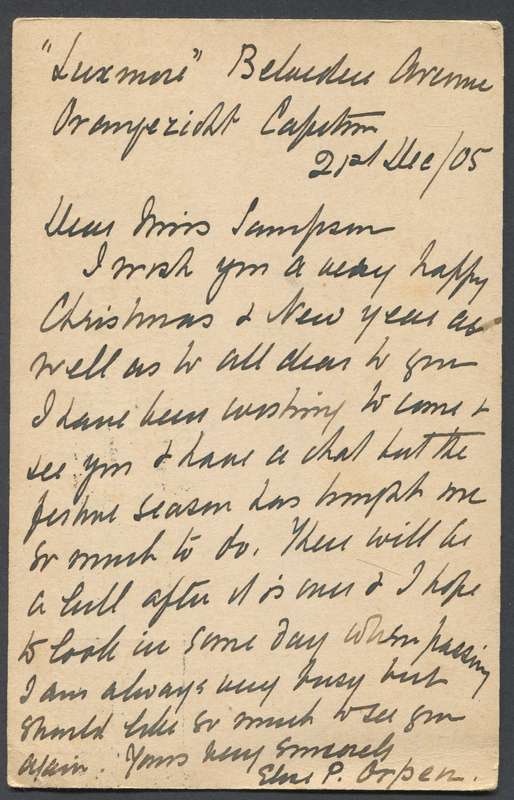 "Luxmore" Belvedere Avenue
Oranjezicht Capetown
21st Dec/05
Dear Miss Sampson
I wish you a very happy
Christmas & New Year as
well as to all dear to you
I have been wishing to come &
see you & have a chat but the
festive season has brought me
so much to do. There will be
a lull after it is over & I hope
to look in some day when passing
I am always very busy but
should like so much to see you
again. Yours very sincerely
P. Orpen.